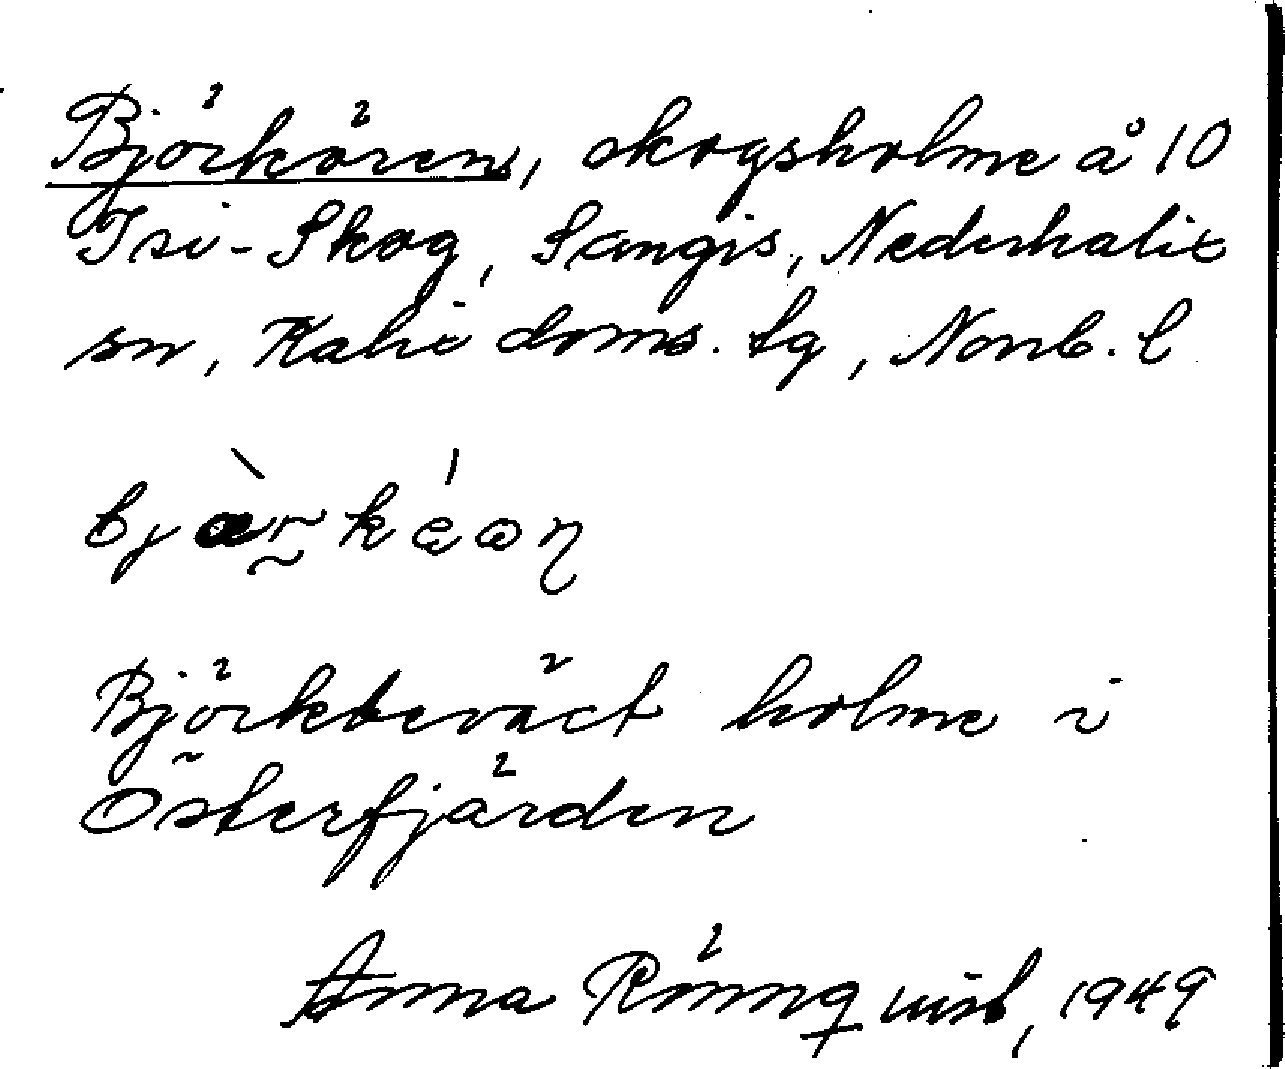 Björkören, skogsholme å 10
Isi-Skog, Sangis, Nederkalix
sn, Kalix doms. tg, Norrb. l
Björkbeväxt holme i
Österfjärden
Anna Rönnqvist, 1949